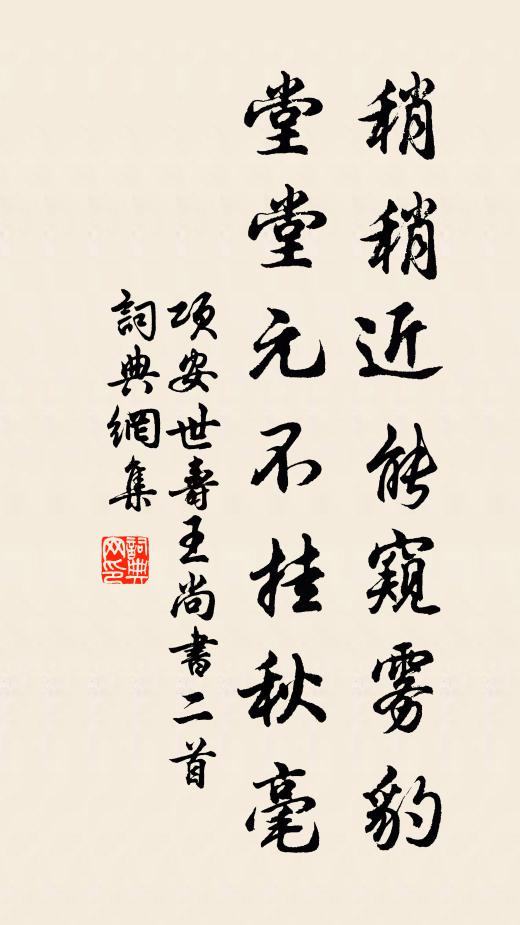 稍稍近能窺雾豹
堂堂元不挂秋毫
项安世壽王尚書二首
詞典網集
詞典网印